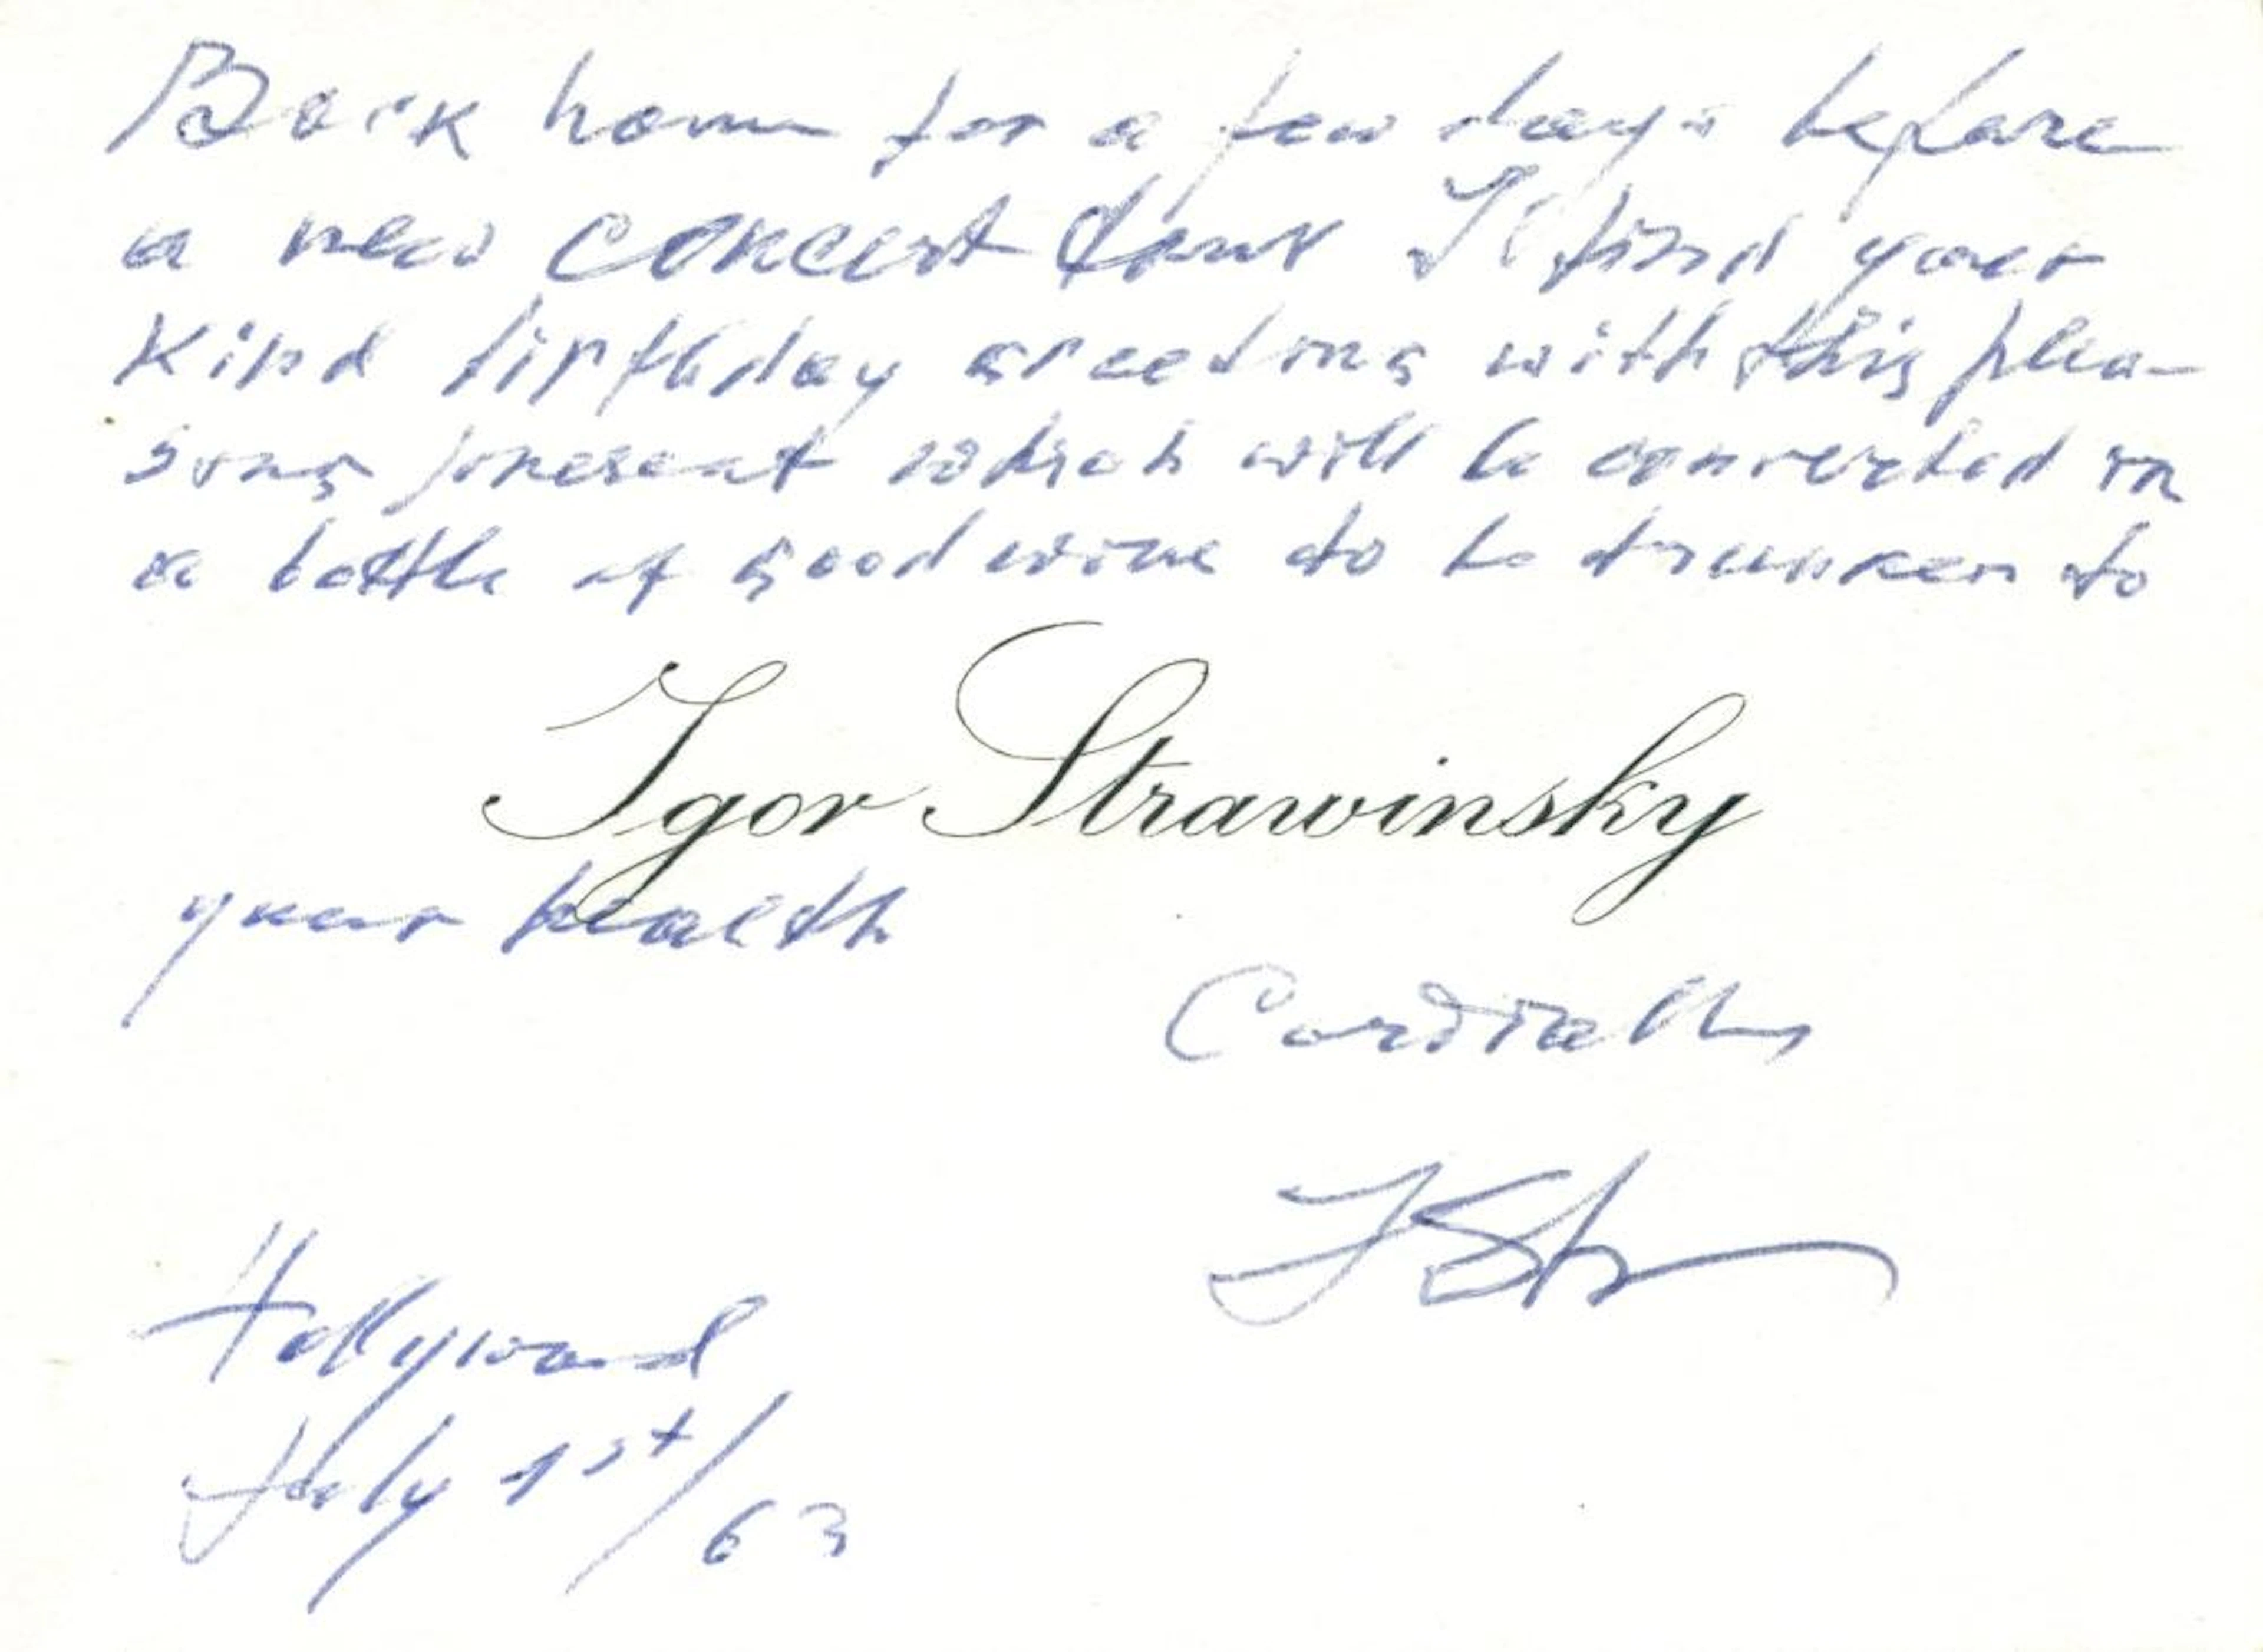 Back home for a few days before
a new concert tour I find your
kind birthday greeting with this plea-
sing present which will be converted in
a bottle of good wine to be drunken to
Igor Strawinsky
your health
Cordially
IStr
Hollywood
July 1st/63